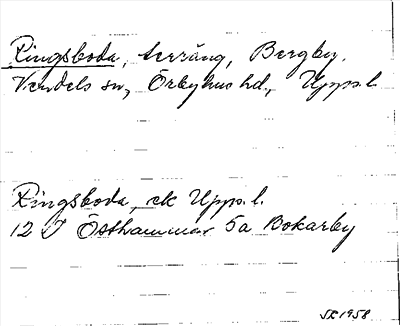 Ringsboda, terräng, Bergby,
Vendels sn, Örbyhus hd., Upps.l.
Ringsboda, ek Upps.l.
12 I Östhammar 5a Bokarby
1958